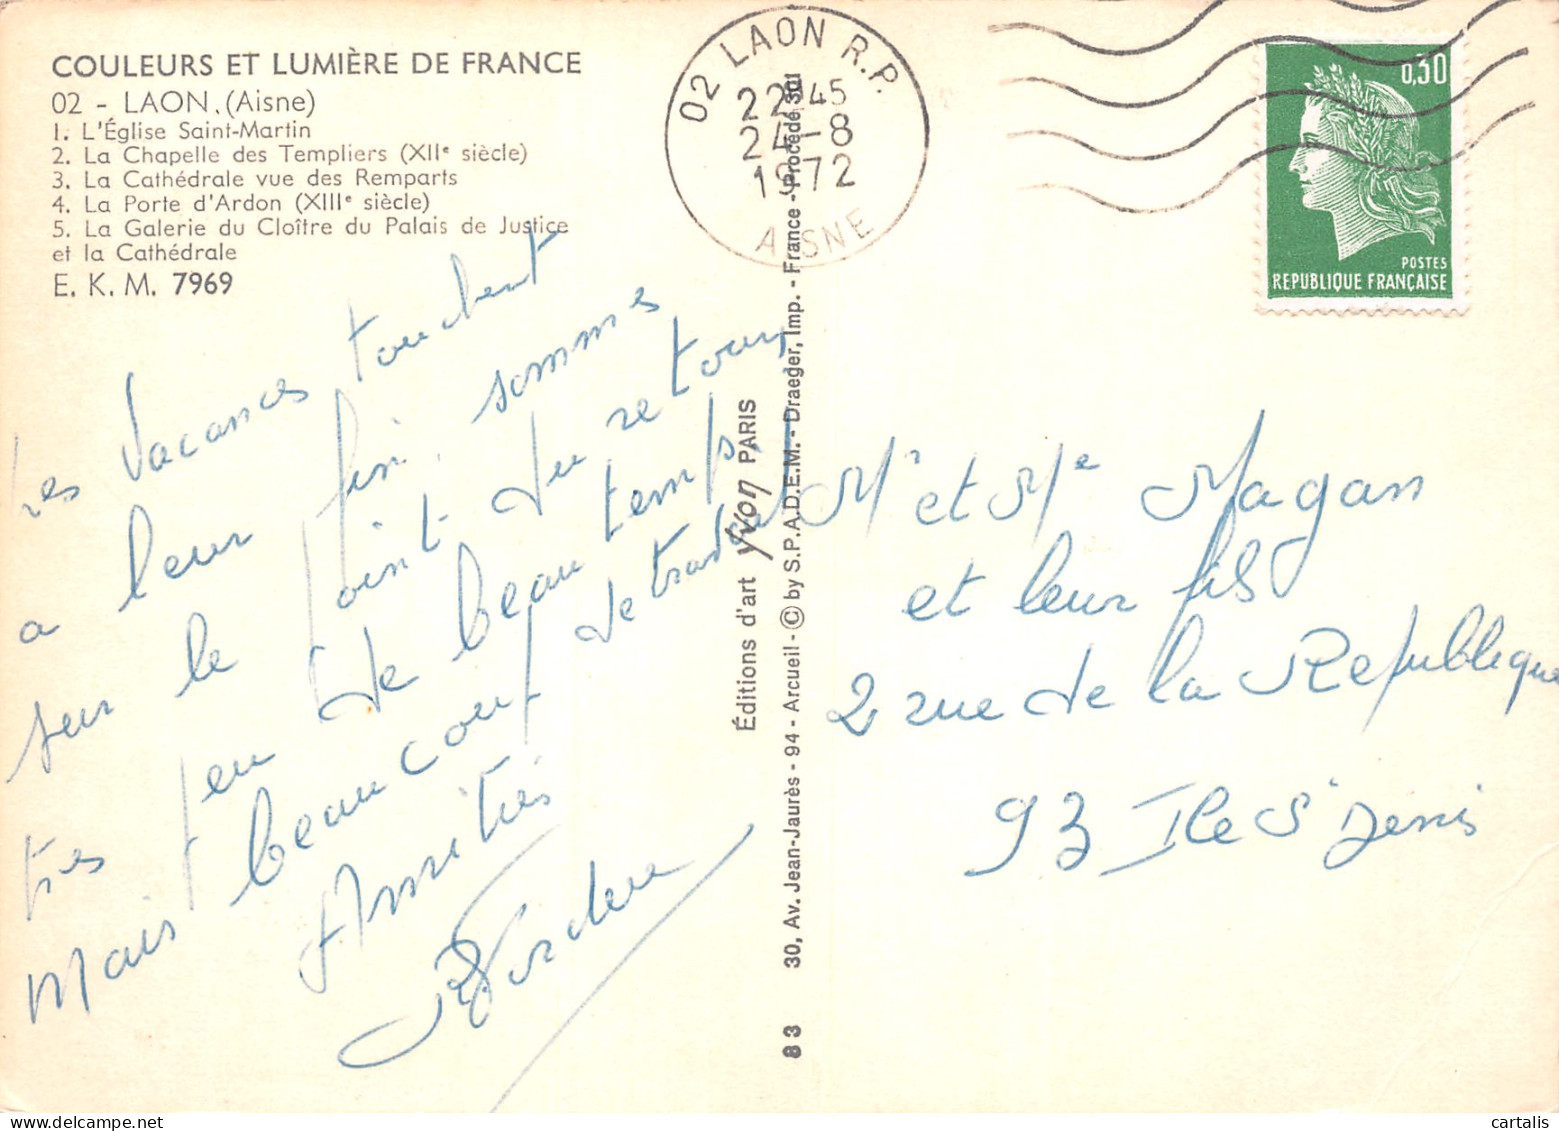 COULEURS ET LUMIÈRE DE FRANCE
02 - LAON. (Aisne)
1. L'Église Saint-Martin
2. La Chapelle des Templiers (XIIe siècle)
3. La Cathédrale vue des Remparts
4. La Porte d'Ardon (XIIIe siècle)
5. La Galerie du Cloître du Palais de Justice
et la Cathédrale
E. K. M. 7969
Les vacances touchent
a leur fin, sommes
sur le point du retour,
très peu de beau temps
Mais beaucoup de travail
Amitiés
02 LAON R.P.
22H45
24-8
1972
AISNE
0,30
POSTES
REPUBLIQUE FRANÇAISE
Éditions d'art Yvon PARIS
83 30, Av. Jean-Jaurès - 94 - Arcueil - © by S.P.A.D.E.M. - Draeger, Imp. - France - Procédé 301
Mr et Me Magan
et leur fils
2 rue de la Republique
93 Ile St Denis
cartalis